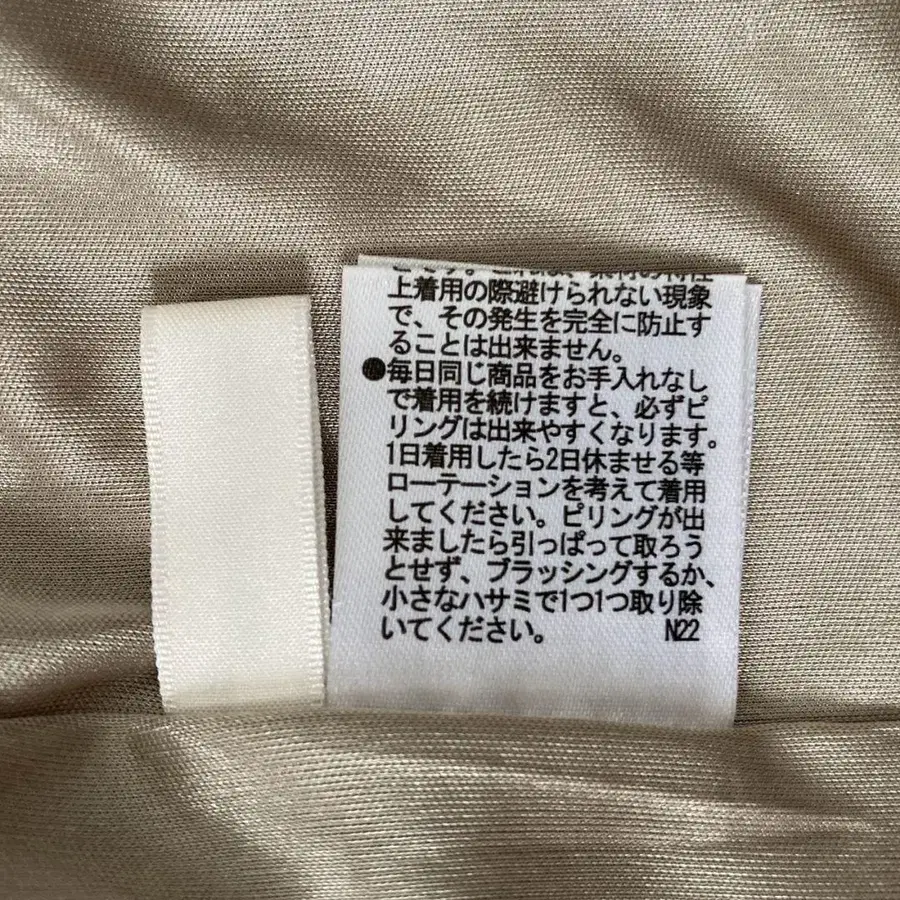 上着用の際避けられない現象
で、その発生を完全に防止す
ることは出来ません。
●毎日同じ商品をお手入れなし
で着用を続けますと、必ずピ
リングは出来やすくなります。
1日着用したら2日休ませる等
ローテーションを考えて着用
してください。ピリングが出
来ましたら引っぱって取ろう
とせず、ブラッシングするか、
小さなハサミで1つ1つ取り除
いてください。 N22